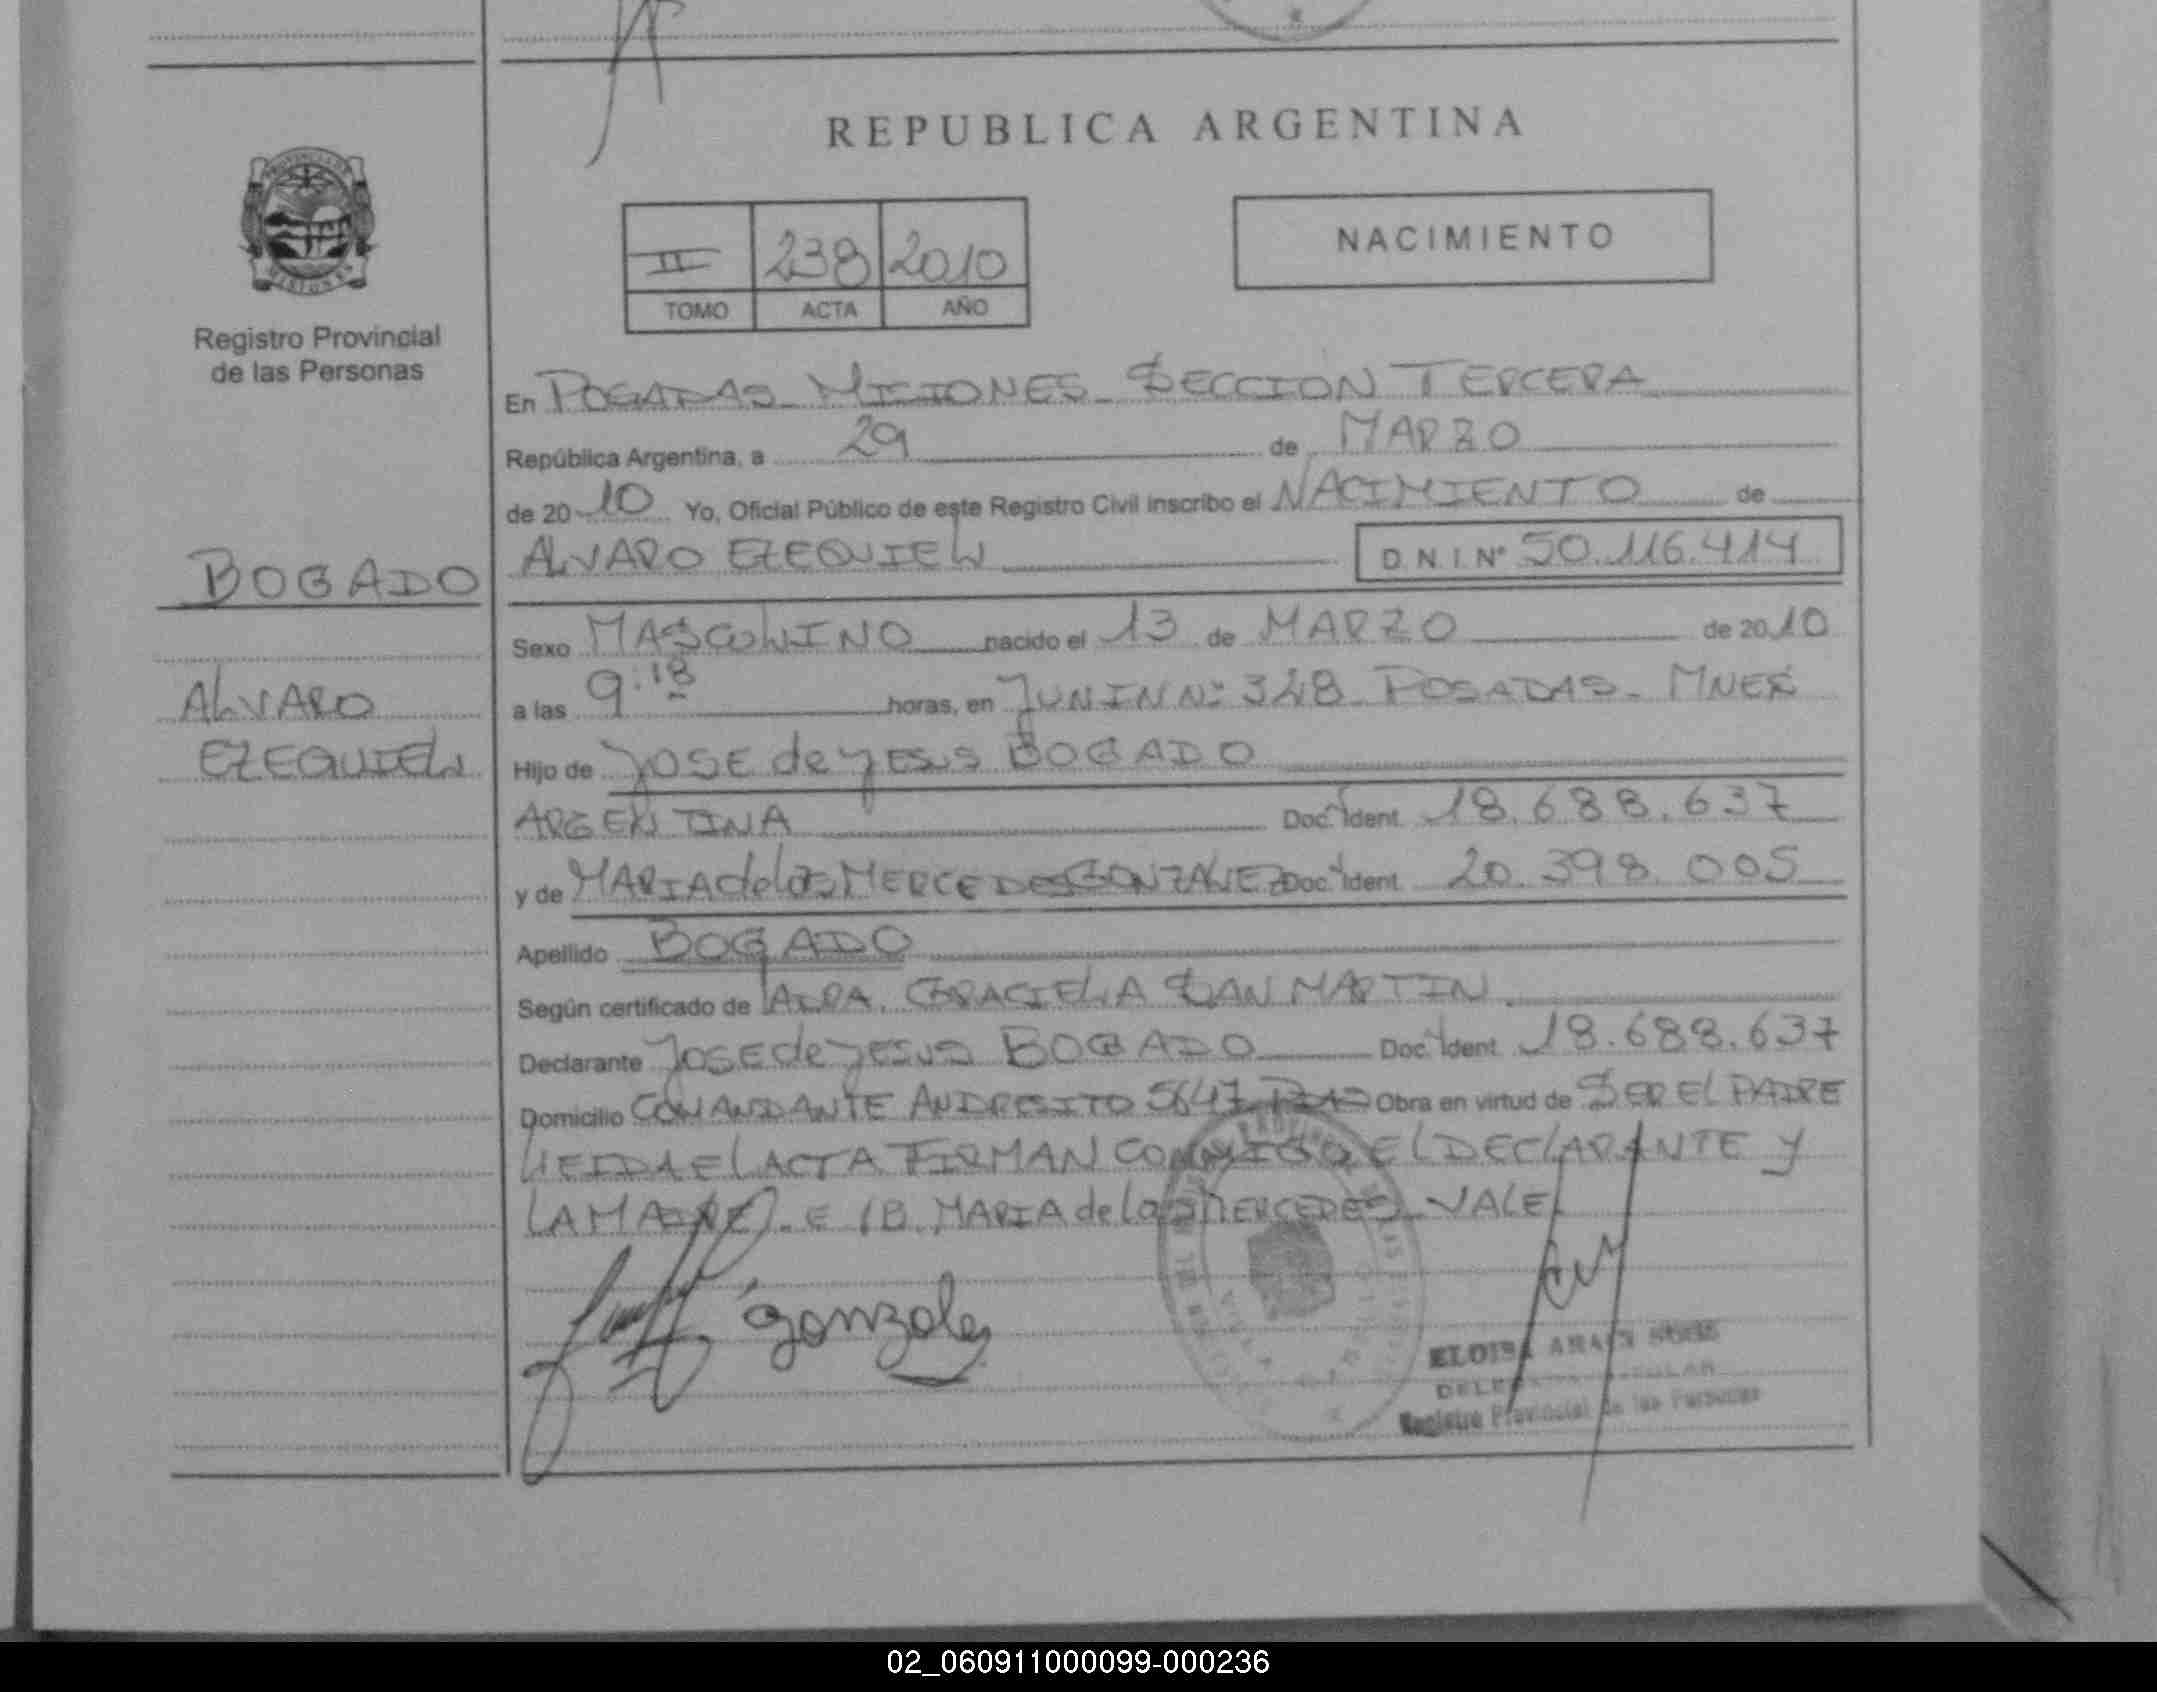 REPUBLICA ARGENTINA
NACIMIENTO
II 238 2010
TOMO ACTA AÑO
Registro Provincial
de las Personas
En POSADAS - MISIONES - SECCION TERCERA
República Argentina, a 29 de MARZO
de 20 10 Yo, Oficial Público de este Registro Civil inscribo el NACIMIENTO de
BOGADO
ALVARO EZEQUIEL D.N.I. Nº 50.116.414
Sexo MASCULINO nacido el 13 de MARZO de 20 10
ALVARO
EZEQUIEL
a las 9:18 horas, en JUNIN Nº 348 POSADAS - MNES
Hijo de JOSE de JESUS BOGADO
ARGENTINA Doc. Ident. 18.688.637
y de MARIA de las MERCEDES GONZALEZ Doc. Ident. 20.398.005
Apellido BOGADO
Según certificado de GRACIELA SAN MARTIN.
Declarante JOSE de JESUS BOGADO Doc. Ident. 18.688.637
Domicilio COMANDANTE ANDRESITO 5647 Obra en virtud de SER EL PADRE
LEIDA EL ACTA FIRMAN CONMIGO EL DECLARANTE Y
LA MADRE. MARIA de las MERCEDES - VALE
gonzalez
ELOISA
Registro Provincial de las Personas
02_060911000099-000236